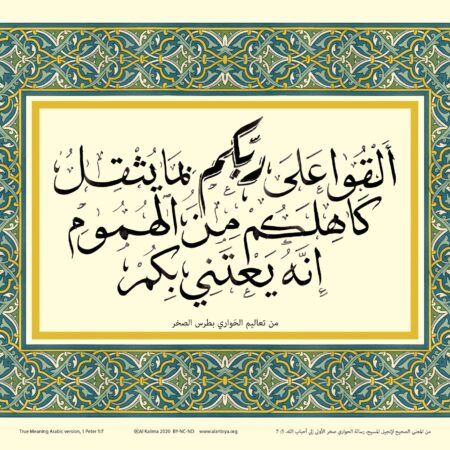 أَلْقُوا عَلَى رَبِّكُم بِمَا يُثْقِلُ
كَاهِلَكُمْ مِنَ الْهُمُومِ
إِنَّهُ يَعْتَنِي بِكُمْ
من تعاليم الحَواري بطرس الصخر
True Meaning Arabic version, 1 Peter 5:7
©Al Kalima 2020 BY-NC-ND www.alantiya.org
من المعنى الصحيح لإنجيل المسيح، رسالة الحواري صخر الأولى إلى أحباب الله، 5: 7